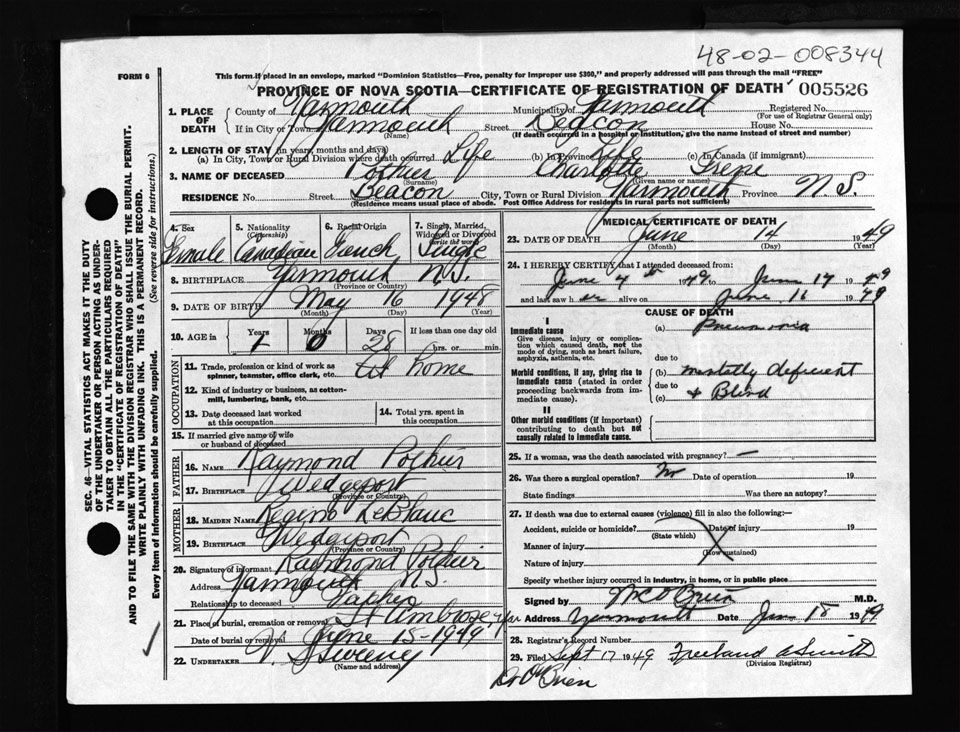 48-02-008344
FORM 6
This form if placed in an envelope, marked "Dominion Statistics—Free, penalty for improper use $300," and properly addressed will pass through the mail "FREE"
PROVINCE OF NOVA SCOTIA—CERTIFICATE OF REGISTRATION OF DEATH 005526
1. PLACE OF DEATH
County of Yarmouth Municipality of Yarmouth Registered No.
(For use of Registrar General only)
If in City or Town Yarmouth Street Beacon House No.
(Name) (If death occurred in a hospital or institution, give the name instead of street and number)
2. LENGTH OF STAY (in years, months and days)
(a) In City, Town or Rural Division where death occurred Life (b) in Province Life (c) in Canada (if immigrant)
3. NAME OF DECEASED Pothier Charlotte Irene
(Surname) (Given name or names)
RESIDENCE No. Beacon City, Town or Rural Division Yarmouth Province N.S.
(Residence means usual place of abode. Post Office Address for residents in rural parts not sufficient)
4. Sex Female
5. Nationality (Citizenship) Canadian
6. Racial Origin French
7. Single, Married, Widowed or Divorced (write the word) Single
8. BIRTHPLACE Yarmouth N.S.
(Province or Country)
9. DATE OF BIRTH May 16 1948
(Month) (Day) (Year)
10. AGE in Years Months Days If less than one day old
1 0 28 hrs. or min.
OCCUPATION
11. Trade, profession or kind of work as spinner, teamster, office clerk, etc. At Home
12. Kind of industry or business, as cotton-mill, lumbering, bank, etc.
13. Date deceased last worked at this occupation
14. Total yrs. spent in this occupation
15. If married give name of wife or husband of deceased
FATHER
16. NAME Raymond Pothier
17. BIRTHPLACE Wedgeport
(Province or Country)
MOTHER
18. MAIDEN NAME Regina LeBlanc
19. BIRTHPLACE Wedgeport
(Province or Country)
20. Signature of informant Raymond Pothier
Address Yarmouth N.S.
Relationship to deceased Father
21. Place of burial, cremation or removal St Ambrose
Date of burial or removal June 15-1949
22. UNDERTAKER V. S Sweeney
(Name and address)
MEDICAL CERTIFICATE OF DEATH
23. DATE OF DEATH June 14 1949
(Month) (Day) (Year)
24. I HEREBY CERTIFY that I attended deceased from:
June 4th 1949 to June 14 1949
and last saw her alive on June 11 1949
CAUSE OF DEATH
I
Immediate cause
Give disease, injury or complication which caused death, not the mode of dying, such as heart failure, asphyxia, asthenia, etc.
(a) Pneumonia
due to
Morbid conditions, if any, giving rise to immediate cause (stated in order proceeding backwards from immediate cause).
(b) mentally deficient
due to
(c) & Blind
II
Other morbid conditions (if important) contributing to death but not causally related to immediate cause.
25. If a woman, was the death associated with pregnancy? —
26. Was there a surgical operation? No Date of operation 19
State findings Was there an autopsy?
27. If death was due to external causes (violence) fill in also the following:—
Accident, suicide or homicide? Date of injury 19
(State which)
Manner of injury
(How sustained)
Nature of injury
Specify whether injury occurred in industry, in home, or in public place
Signed by M C O'Brien M.D.
Address Yarmouth Date June 15 1949
28. Registrar's Record Number
29. Filed Sept 17 1949 Freeland A Smith
(Division Registrar)
Dr O'Brien
SEC. 46—VITAL STATISTICS ACT MAKES IT THE DUTY
OF THE UNDERTAKER OR PERSON ACTING AS UNDER-
TAKER TO OBTAIN ALL THE PARTICULARS REQUIRED
IN THE "CERTIFICATE OF REGISTRATION OF DEATH"
AND TO FILE THE SAME WITH THE DIVISION REGISTRAR WHO SHALL ISSUE THE BURIAL PERMIT.
WRITE PLAINLY WITH UNFADING INK. THIS IS A PERMANENT RECORD.
Every item of information should be carefully supplied. (See reverse side for instructions.)